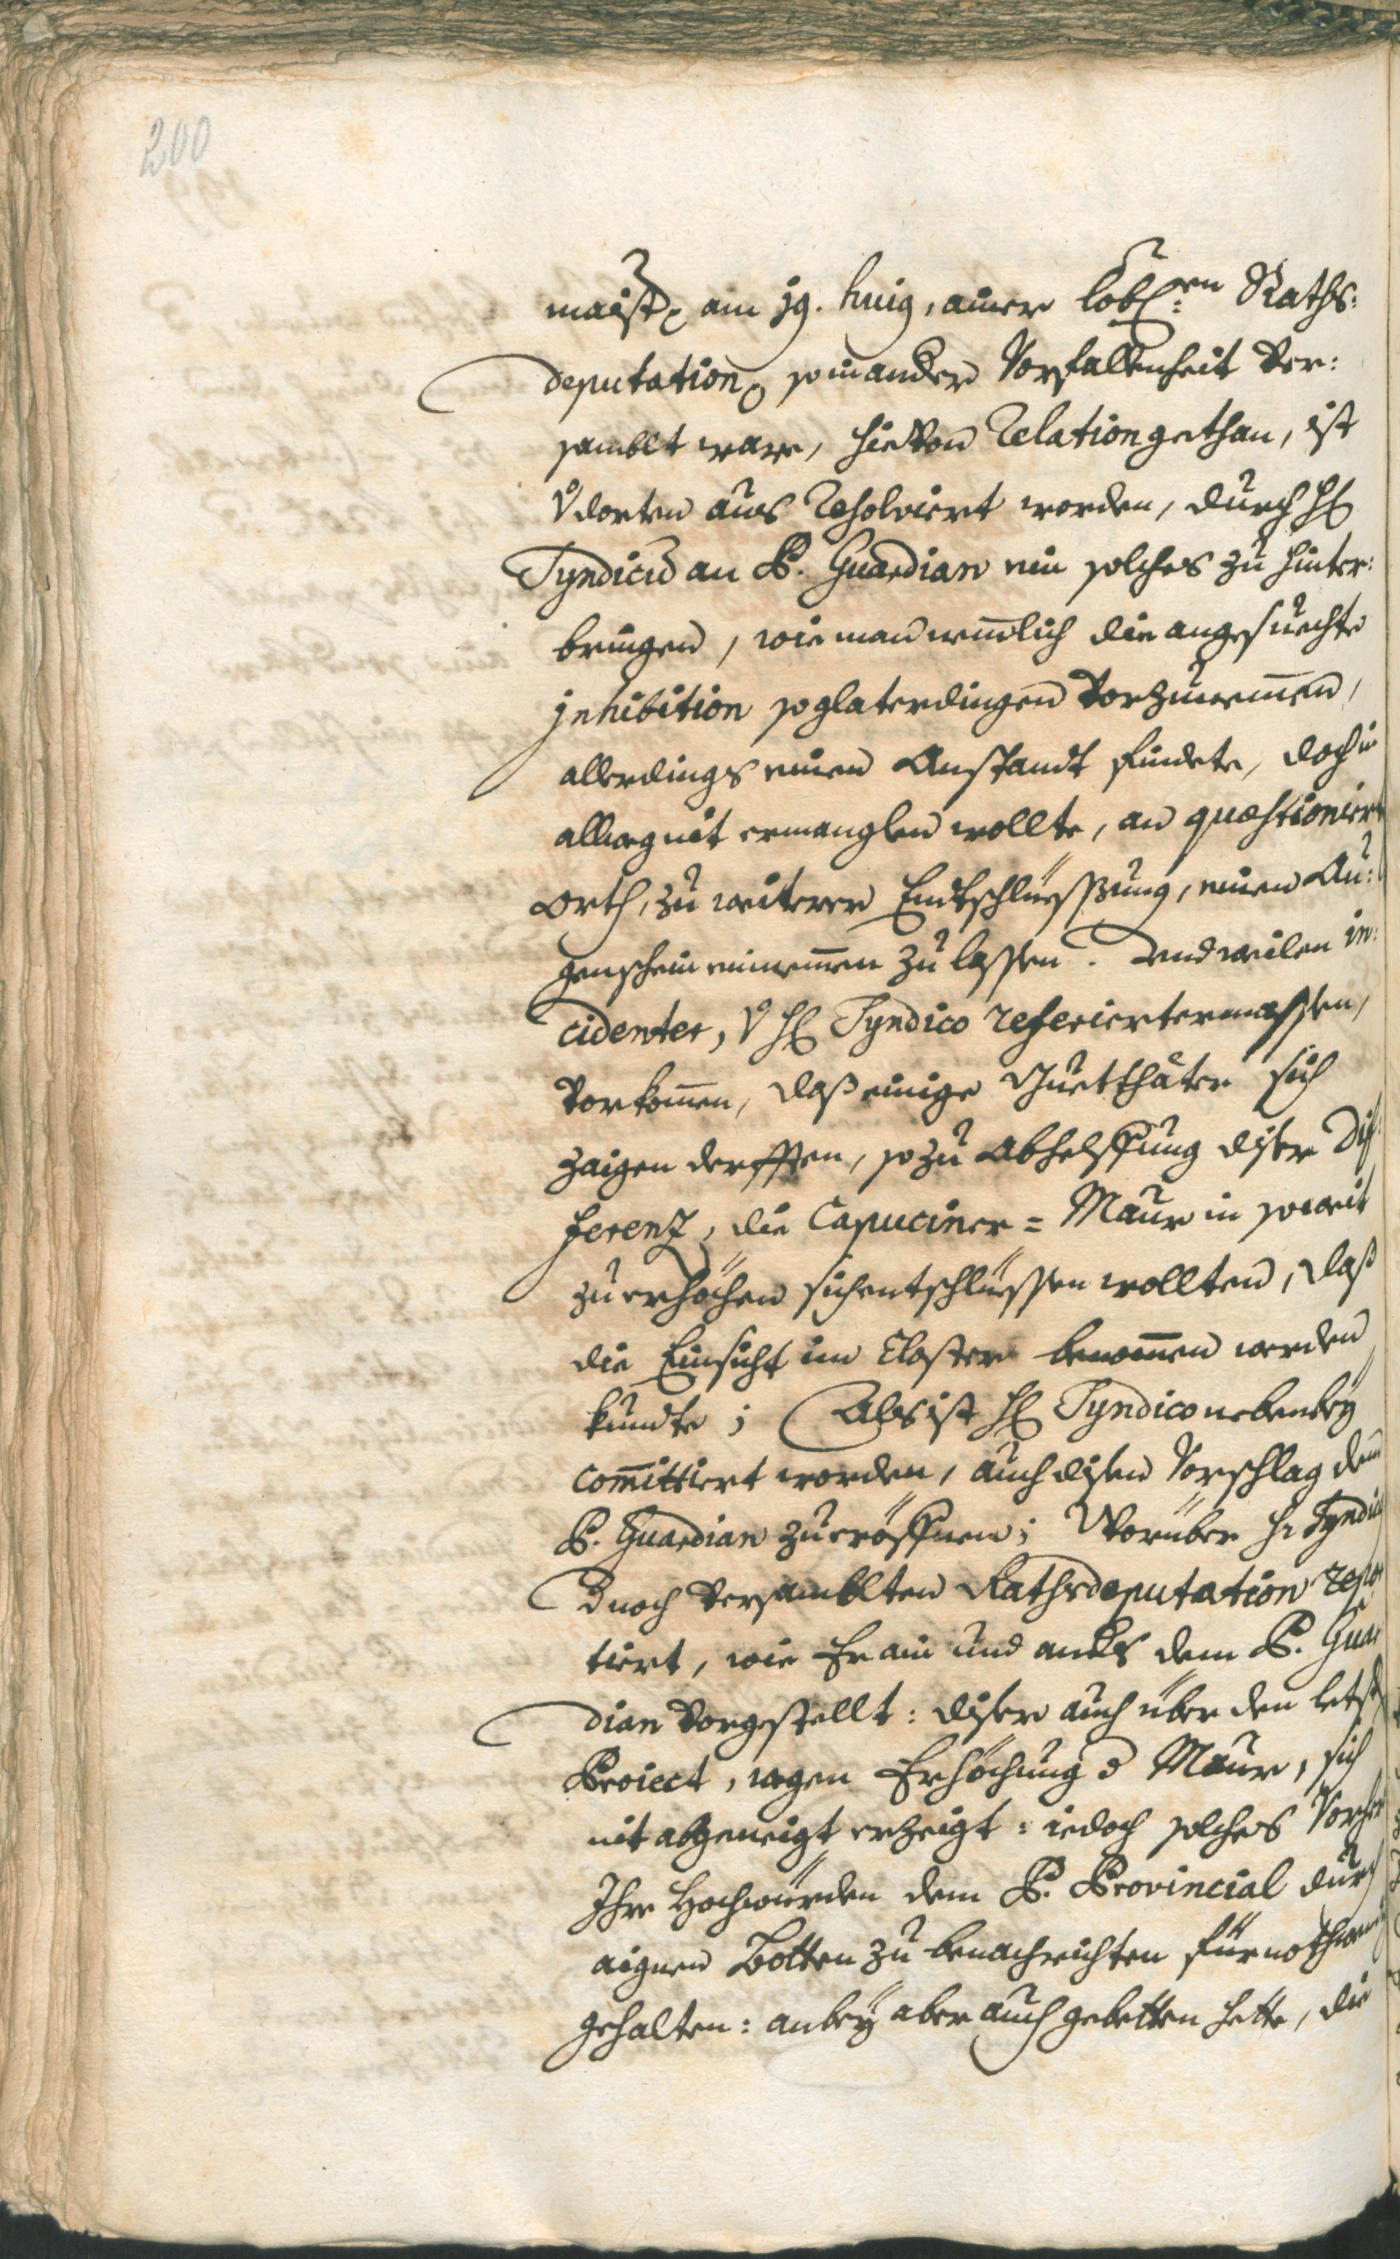 200
maister am 19. huig, ainer lobl:en Raths:
deputation, so in ander Vorfallenheit ver:
samblt ware, hievon Relation gethan, ist
v. dorten aus Resolviert worden, durch H.
Syndicu an P. Guardian ein solches zu hinter:
bringen, wie man nemlich die angesuechte
inhibition so glaterdingen vorzunemen,
allerdings einen Anstandt findete, doch in
allweg nit ermanglen wollte, an quæstionirt
orth, zu weiterer Entschlüessung, einen Au:
genschein einnemen zu lassen. Und weilen in:
cidenter, v. H. Syndico referiertermassen,
vorkomen, daß einige Guetthäter sich
zaigen derfften, so zu Abhelffung diser Dif:
ferenz, die Capuciner = Maur in so weit
zu erhöchen sich entschlüessen wollten, daß
die Einsicht im Closter benommen werden
kundte; Als ist H. Syndico nebenbey
committiert worden, auch disen Vorschlag dem
P. Guardian zu eröffnen; Worüber H. Syndic
d noch versamblten Rathsdeputation repor
tiert, wie Er ain und anders dem P. Guar
dian vorgestellt: diser auch über den letst
Project, wegen Erhöchung d Maur, sich
nit abgeneigt erzeigt: iedoch solches Vorher
Ihre Hochwürden dem P. Provincial durch
aignen Botten zu benachrichten für nothwendig
gehalten: anbey aber auch gebetten hette, die